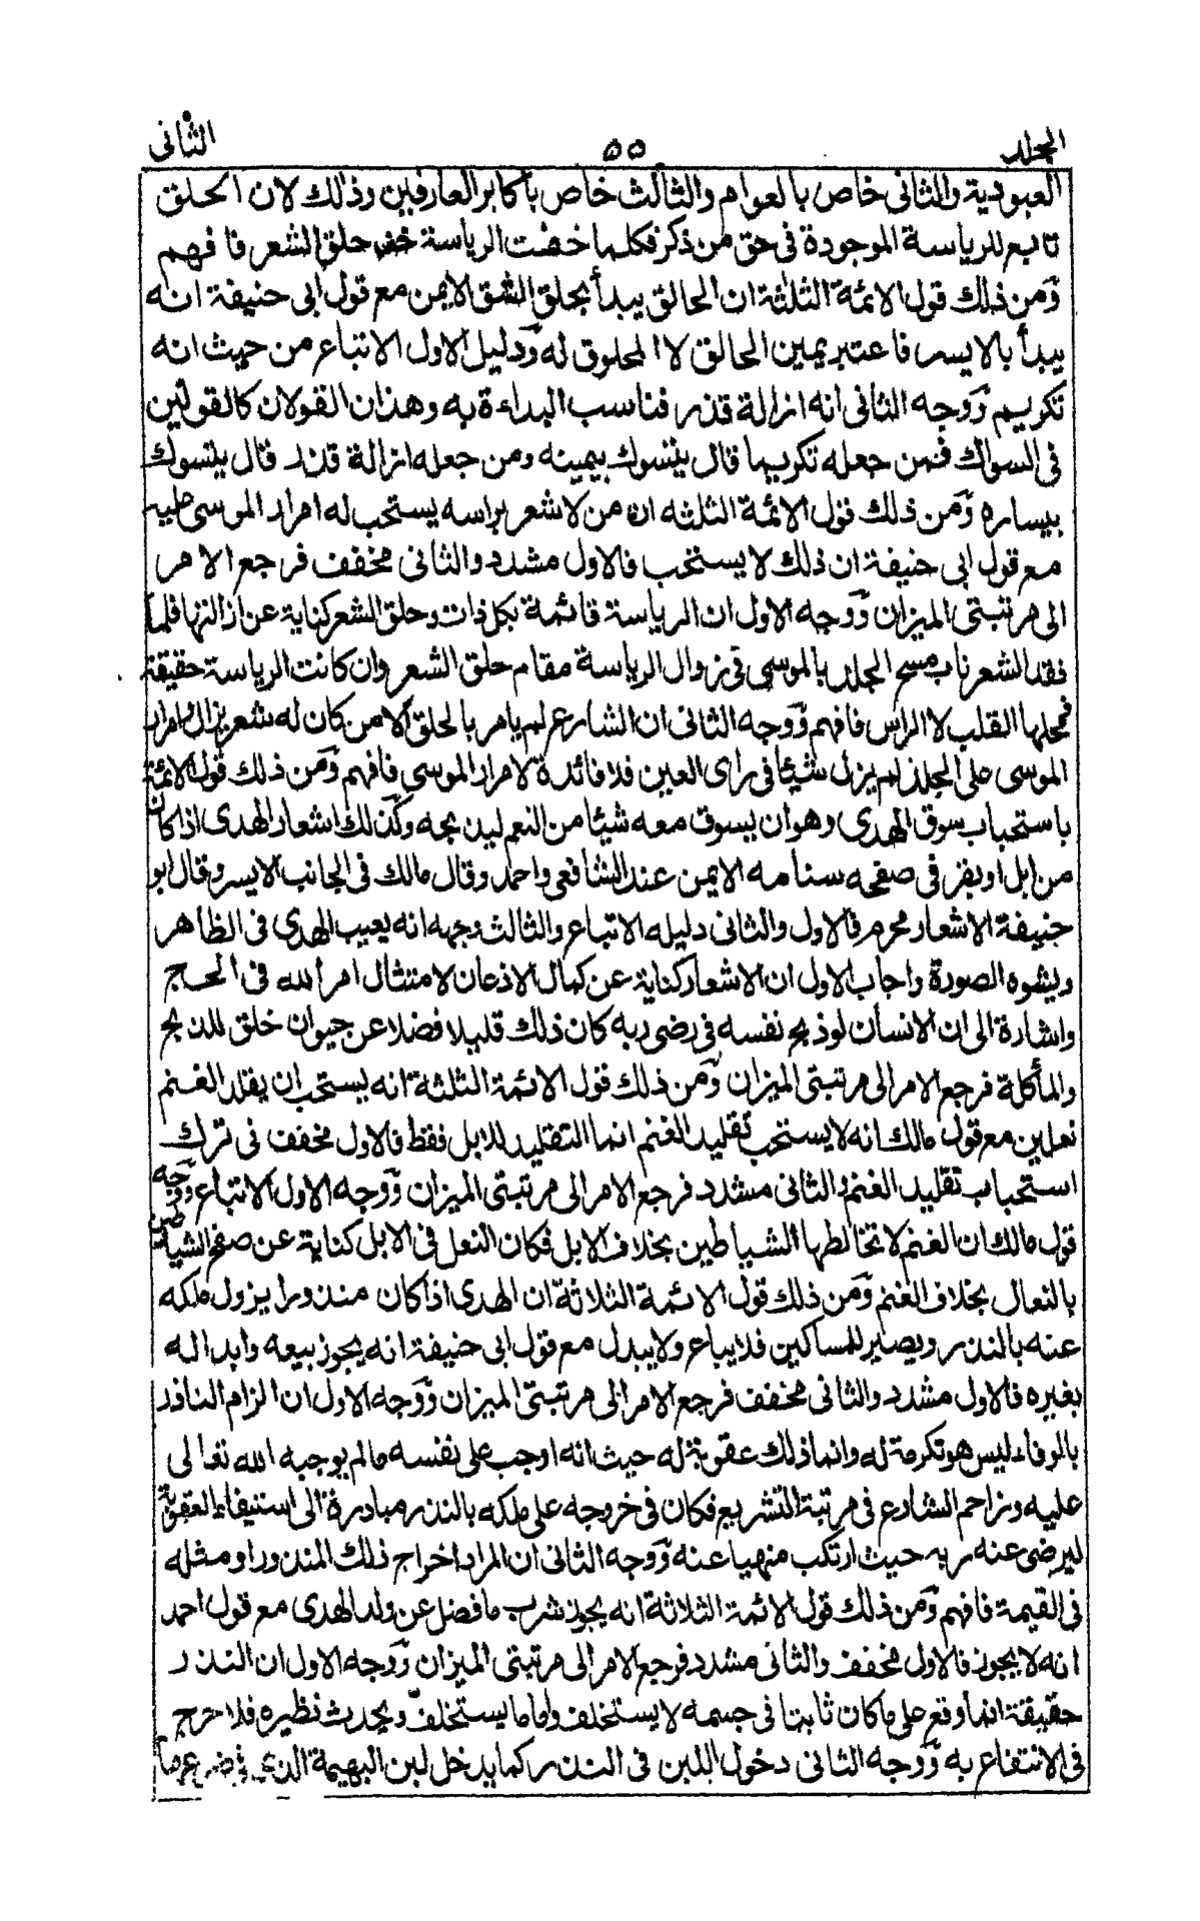 المجلد
٥٥
الثانى
العبودية والثانى خاص بالعوام والثالث خاص بأكابر العارفين وذلك لان الحلق
تابع للرياسة الموجودة فى حق من ذكر فكلما خفت الرياسة خف حلق الشعر فافهم
ومن ذلك قول الائمة الثلثة ان الحالق يبدأ بحلق الشق الايمن مع قول ابى حنيفة انه
يبدأ بالايسر فاعتبر يمين الحالق لا المحلوق له ودليل الاول الاتباع من حيث انه
تكريم ووجه الثانى انه ازالة قذر فناسب البداءة به وهذان القولان كالقولين
فى السواك فمن جعله تكريما قال يتسوك بيمينه ومن جعله ازالة قذر قال يتسوك
بيساره ومن ذلك قول الائمة الثلثه ان من لا شعر براسه يستحب له امرار الموسى عليه
مع قول ابى حنيفة ان ذلك لا يستحب فالاول مشدد والثانى مخفف فرجع الامر
الى مرتبتى الميزان ووجه الاول ان الرياسة قائمة بكل ذات وحلق الشعر كناية عن ازالتها فلما
فقد الشعر ناب مسح الجلد بالموسى فى زوال الرياسة مقام حلق الشعر وان كانت الرياسة حقيقة
محلها القلب لا الراس فافهم ووجه الثانى ان الشارع لم يامر بالحلق الا من كان له شعر يزال وامرار
الموسى على الجلد لم يزل شيئا فى راى العين فلا فائدة لامرار الموسى فافهم ومن ذلك قول الائمة
باستحباب سوق الهدى وهو ان يسوق معه شيئا من النعم ليذبحه وكذلك اشعار الهدى اذا كان
من ابل او بقر فى صفحه سنامه الايمن عند الشافعى واحمد وقال مالك فى الجانب الايسر وقال ابو
حنيفة الاشعار محرم فالاول والثانى دليله الاتباع والثالث وجهه انه يعيب الهدى فى الظاهر
ويشوه الصورة واجاب الاول ان الاشعار كناية عن كمال الاذعان لامتثال امر الله فى الحج
واشارة الى ان الانسان لو ذبح نفسه فى رضى ربه كان ذلك قليلا فضلا عن حيوان خلق للذبح
والمأكلة فرجع الامر الى مرتبتى الميزان ومن ذلك قول الائمة الثلثة انه يستحب ان يقلد الغنم
نعلين مع قول مالك انه لا يستحب تقليد الغنم انما التقليد للابل فقط فالاول مخفف فى ترك
استحباب تقليد الغنم والثانى مشدد فرجع الامر الى مرتبتى الميزان ووجه الاول الاتباع ووجه
قول مالك ان الغنم لا تخالطها الشياطين بخلاف الابل فكان النعل فى الابل كناية عن صفع الشياطين
بالنعال بخلاف الغنم ومن ذلك قول الائمة الثلاثة ان الهدى اذا كان منذورا يزول ملكه
عنه بالنذر ويصير للمساكين فلا يباع ولا يبدل مع قول ابى حنيفة انه يجوز بيعه وابداله
بغيره فالاول مشدد والثانى مخفف فرجع الامر الى مرتبتى الميزان ووجه الاول ان الزام الناذر
بالوفاء ليس هو تكرمة له وانما ذلك عقوبة له حيث انه اوجب على نفسه مالم يوجبه الله تعالى
عليه وزاحم الشارع فى مرتبة التشريع فكان فى خروجه على ملكه بالنذر مبادرة الى استيفاء العقوبة
ليرضى عنه ربه حيث ارتكب منهيا عنه ووجه الثانى ان المراد اخراج ذلك المنذور او مثله
فى القيمة فافهم ومن ذلك قول الائمة الثلاثة انه يجوز شرب ما فضل عن ولد الهدى مع قول احمد
انه لا يجوز فالاول مخفف والثانى مشدد فرجع الامر الى مرتبتى الميزان ووجه الاول ان النذر
حقيقة انما وقع على ما كان ثابتا فى جسمه لا يستخلف واما ما يستخلف ويحدث نظيره فلا حرج
فى الانتفاع به ووجه الثانى دخول اللبن فى النذر كما يدخل لبن البهيمة الذى فى ضرعها